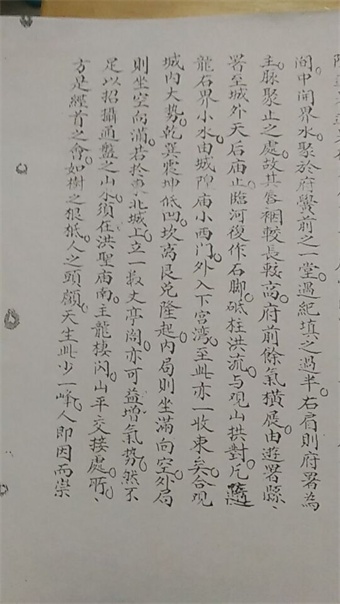 閤中開界水聚於府黌前之一堂遇紀填之過半右肩則府署為
主脉聚止之處故其唇裀較長較高府前餘氣橫展由遊署縣
署至城外天后庙止臨河復作石脚砥柱洪流与观山拱對凡隨
龍石界小水由城隍庙小西門外入下宮湾至此亦一收束矣合观
城内大势乾巽震坤低凹坎离艮兑隆起内局則坐滿向空外局
則坐空向滿若於東北城上立一数丈亭阁亦可益增气势然不
足以招攝通盤之山水须在洪聖庙南主龍棲闪山平交接處
方是經首之會如樹之根柢人之頭顱天生此少一峰人即因而崇